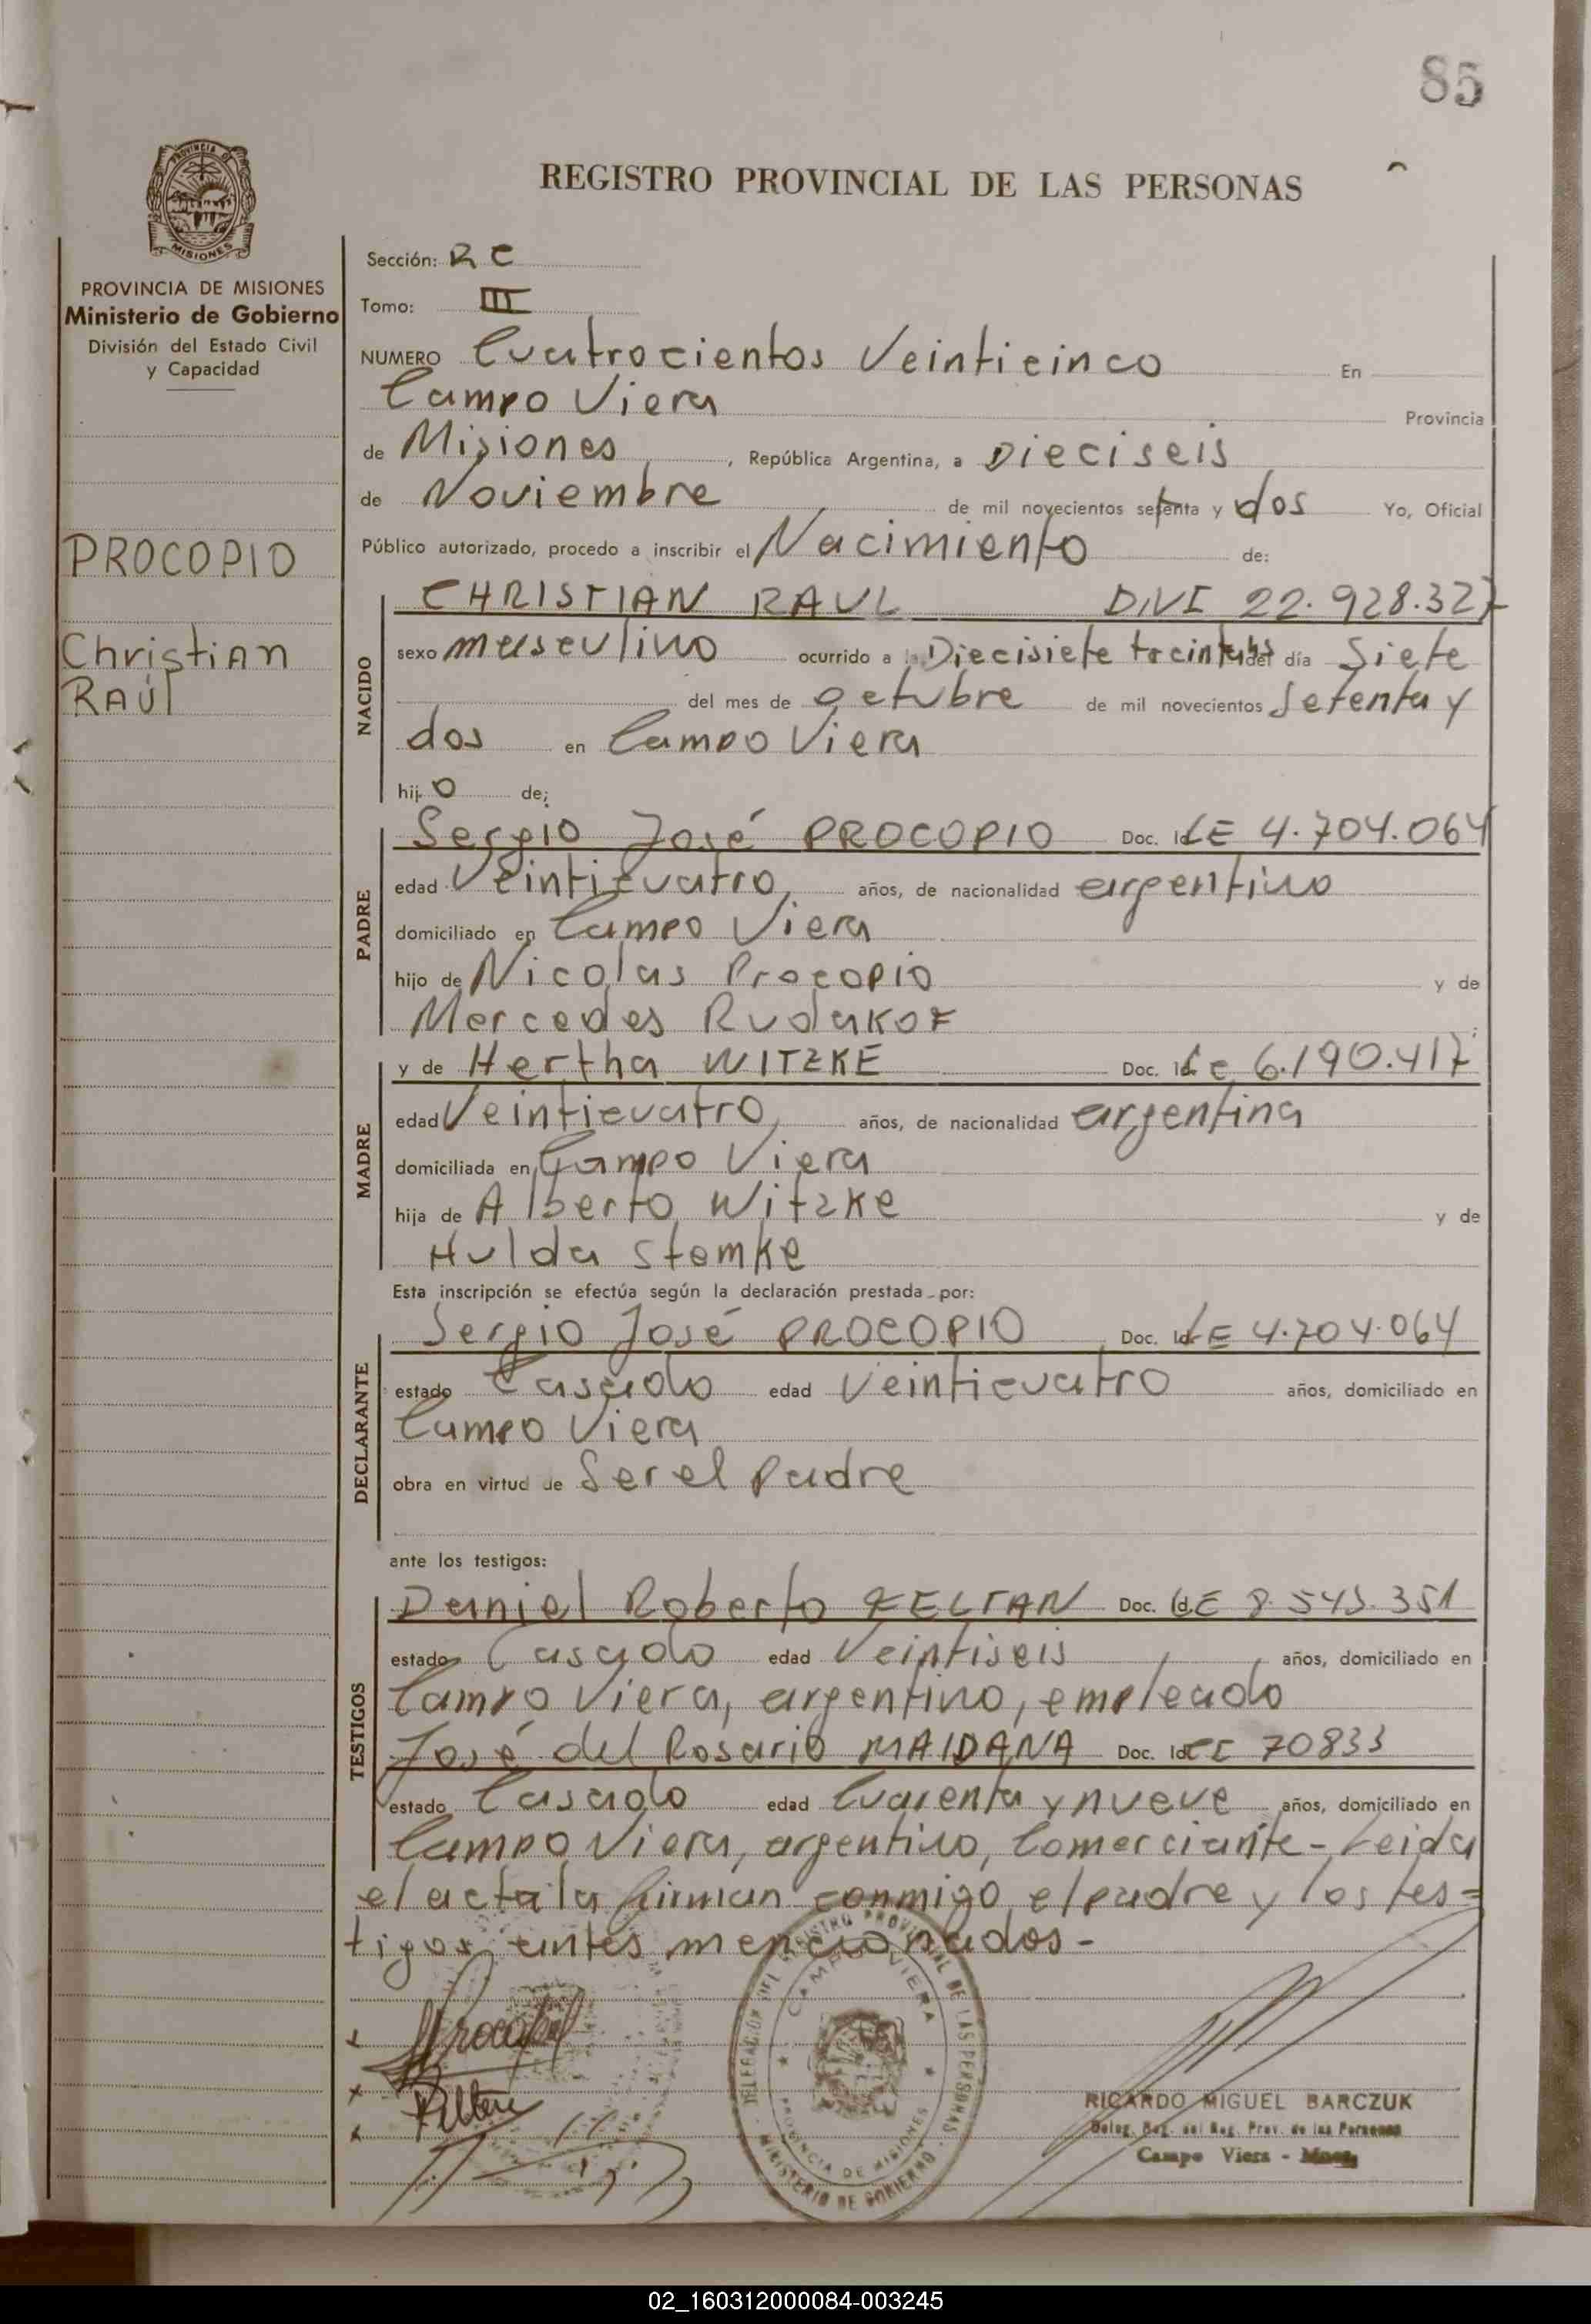 85
REGISTRO PROVINCIAL DE LAS PERSONAS
PROVINCIA DE MISIONES
MISIONES
PROVINCIA DE MISIONES
Ministerio de Gobierno
División del Estado Civil
y Capacidad
PROCOPIO
Christian
RAÚl
Sección: RC
Tomo: III
NUMERO Cuatrocientos Veinticinco En
Campo Viera Provincia
de Misiones, República Argentina, a Dieciseis
de Noviembre de mil novecientos setenta y dos Yo, Oficial
Público autorizado, procedo a inscribir el Nacimiento de:
NACIDO
CHRISTIAN RAUL DNI 22.928.327
sexo masculino ocurrido a Diecisiete treinta hs del día Siete
del mes de octubre de mil novecientos Setenta y
dos en Campo Viera
hijo de:
PADRE
Sergio José PROCOPIO Doc. Id. LE 4.704.064
edad Veinticuatro, años, de nacionalidad argentino
domiciliado en Campo Viera
hijo de Nicolas Procopio y de
Mercedes Rudakof
MADRE
y de Hertha WITZKE Doc. Id. LC 6.190.417
edad Veinticuatro, años, de nacionalidad argentina
domiciliada en Campo Viera
hija de Alberto Witzke y de
Hulda Stemke
Esta inscripción se efectúa según la declaración prestada por:
DECLARANTE
Sergio José PROCOPIO Doc. Id. LE 4.704.064
estado Casado edad Veinticuatro años, domiciliado en
Campo Viera
obra en virtud de Ser el Padre
ante los testigos:
TESTIGOS
Daniel Roberto FELTAN Doc. Id. LE 8.543.351
estado Casado edad Veintiseis años, domiciliado en
Campo Viera, argentino, empleado
José del Rosario MAIDANA Doc. Id. CI 70833
estado Casado edad Cuarenta y nueve años, domiciliado en
Campo Viera, argentino, Comerciante - Leida
el acta la firman conmigo el padre y los tes=
tigos antes mencionados-
DELEGACION DEL REGISTRO PROVINCIAL DE LAS PERSONAS
CAMPO VIERA
PROVINCIA DE MISIONES
MINISTERIO DE GOBIERNO
RICARDO MIGUEL BARCZUK
Deleg. del Reg. Prov. de las Personas
Campo Viera -
02_160312000084-003245